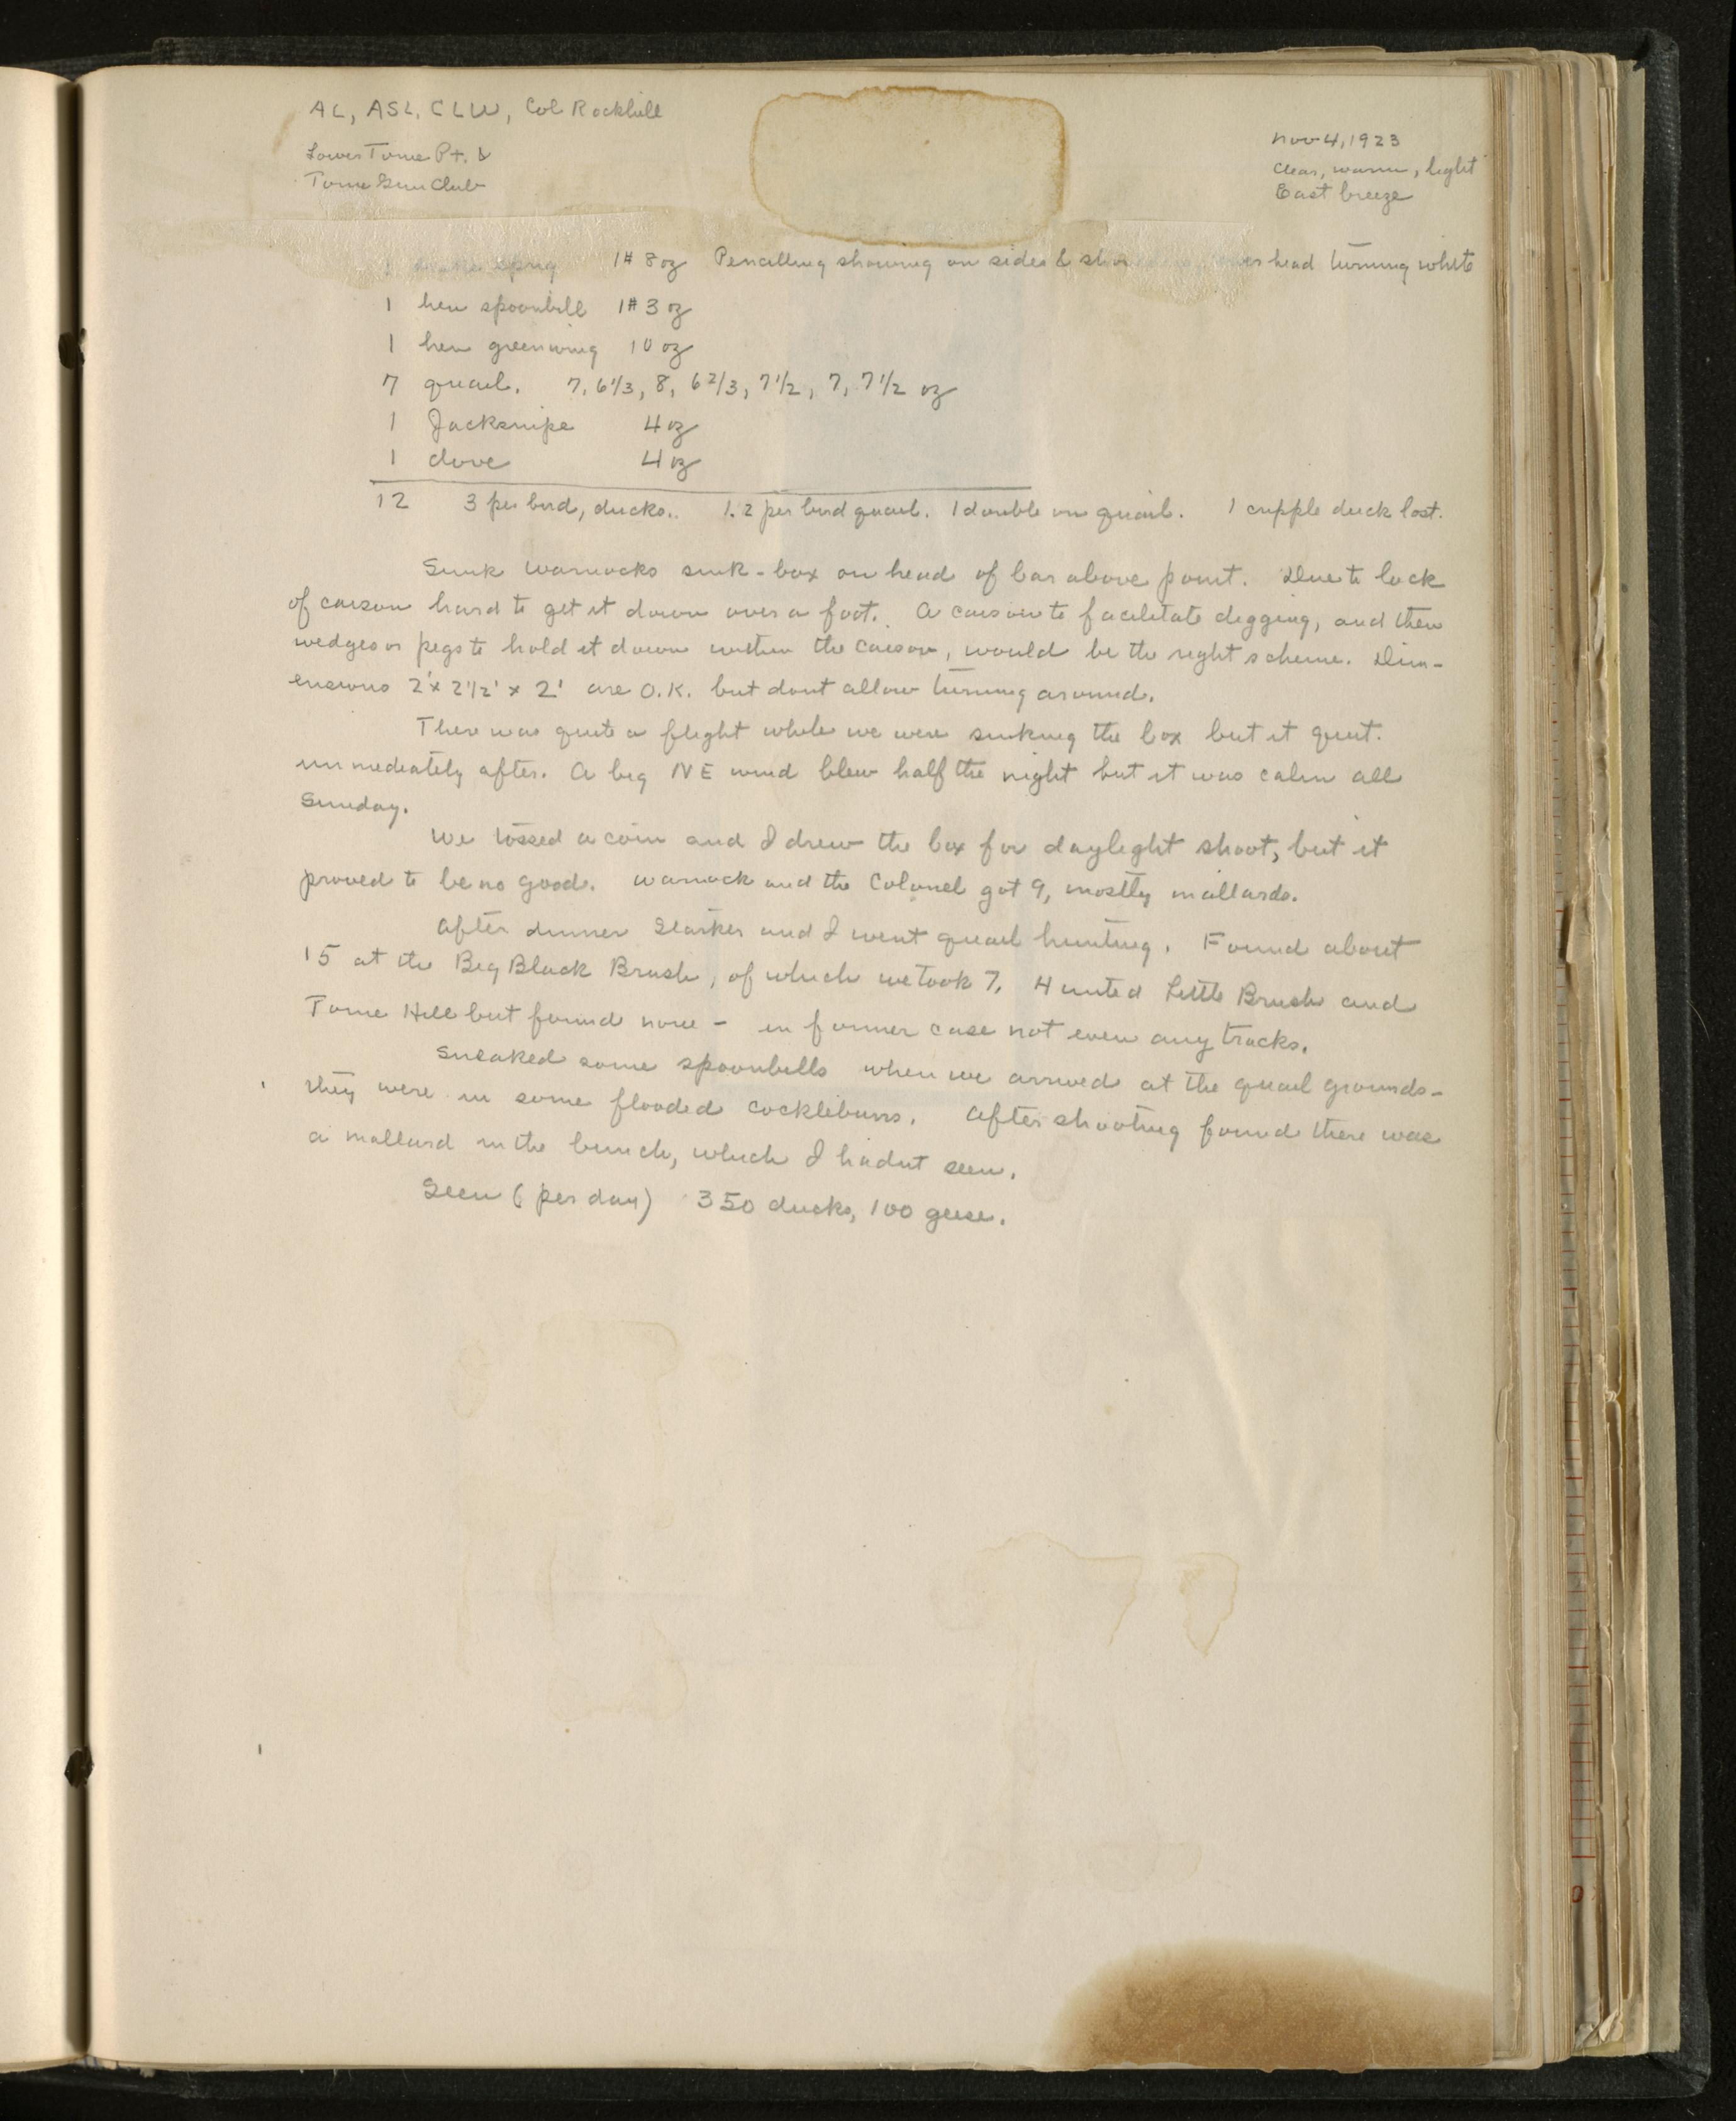 AL, ASL, CLW, Col Rockhill
Lower Tome Pt. &
Tome Gun Club
Nov 4, 1923
Clear, warm, light
East breeze
1 drake sprig 1# 8 oz Pencilling showing on sides & head turning white
1 hen spoonbill 1# 3 oz
1 hen greenwing 10 oz
7 quail. 7, 6 1/3, 8, 6 2/3, 7 1/2, 7, 7 1/2 oz
1 Jacksnipe 4 oz
1 dove 4 oz
12 3 per bird, ducks.. 1.2 per bird quail. 1 double on quail. 1 cripple duck lost.
Sunk Warnocks sink-box on head of bar above point. Due to lack
of caison hard to get it down over a foot. A caison to facilitate digging, and then
wedges or pegs to hold it down within the caison, would be the right scheme. Dim-
ensions 2' x 2 1/2' x 2' are O.K. but dont allow turning around.
There was quite a flight while we were sinking the box but it quit.
immediately after. A big NE wind blew half the night but it was calm all
Sunday.
We tossed a coin and I drew the box for daylight shoot, but it
proved to be no good. Warnock and the Colonel got 9, mostly mallards.
After dinner Starker and I went quail hunting. Found about
15 at the Big Black Brush, of which we took 7. Hunted Little Brush and
Tome Hill but found none - in former case not even any tracks.
Sneaked some spoonbills when we arrived at the quail grounds-
they were in some flooded cockleburrs. After shooting found there was
a mallard in the bunch, which I hadnt seen.
Seen (per day) 350 ducks, 100 geese.